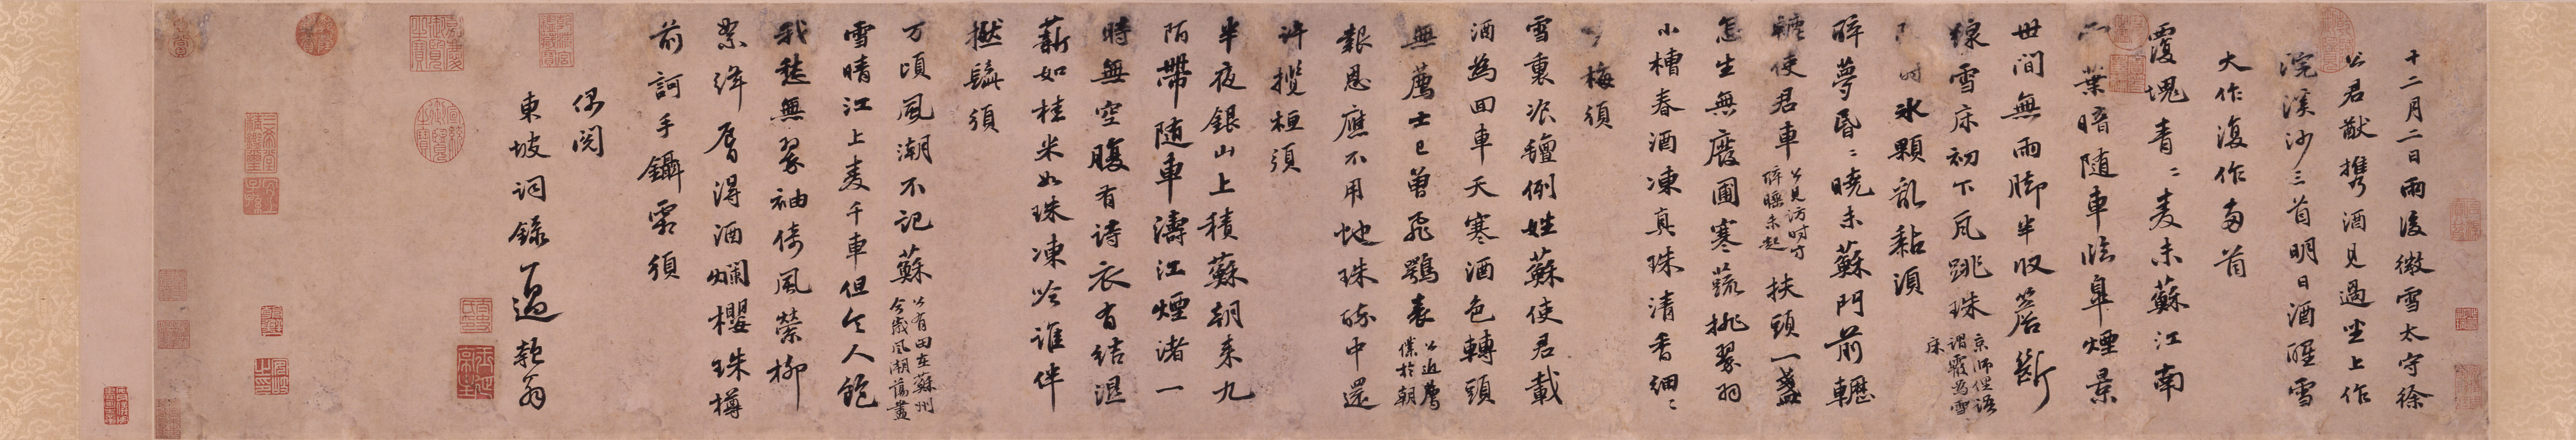 十二月二日雨後微雪太守徐
公君猷攜酒見過坐上作
浣溪沙三首明日酒醒雪
大作復作兩首
覆塊青〻麥未蘇江南
葉暗隨車臨皋煙景
世間無雨脚半收簷斷
線雪床初下瓦跳珠 京師俚語謂霰為雪床
時冰顆亂黏湏
醉夢昏〻曉未蘇門前轣
轆使君車 公見訪時方醉睡未起 扶頭一盞
怎生無廢圃寒蔬挑翠羽
小槽春酒凍真珠清香細〻
梅須
雪裏飡氊例姓蘇使君載
酒為回車天寒酒色轉頭
無薦士已曾飛鶚表 公近薦僕於朝
報恩應不用虵珠醉中還
許攬桓須
半夜銀山上積蘇朝來九
陌帶隨車濤江煙渚一
時無空腹有詩衣有結濕
薪如桂米如珠凍吟誰伴
撚髭須
万頃風潮不記蘇 公有田在蘇州今歲風潮蕩盡
雪晴江上麥千車但令人飽
我愁無翠袖倚風縈柳
絮絳脣得酒爛櫻珠樽
前訶手鑷霜須
偶閱
東坡詞錄一過 翁